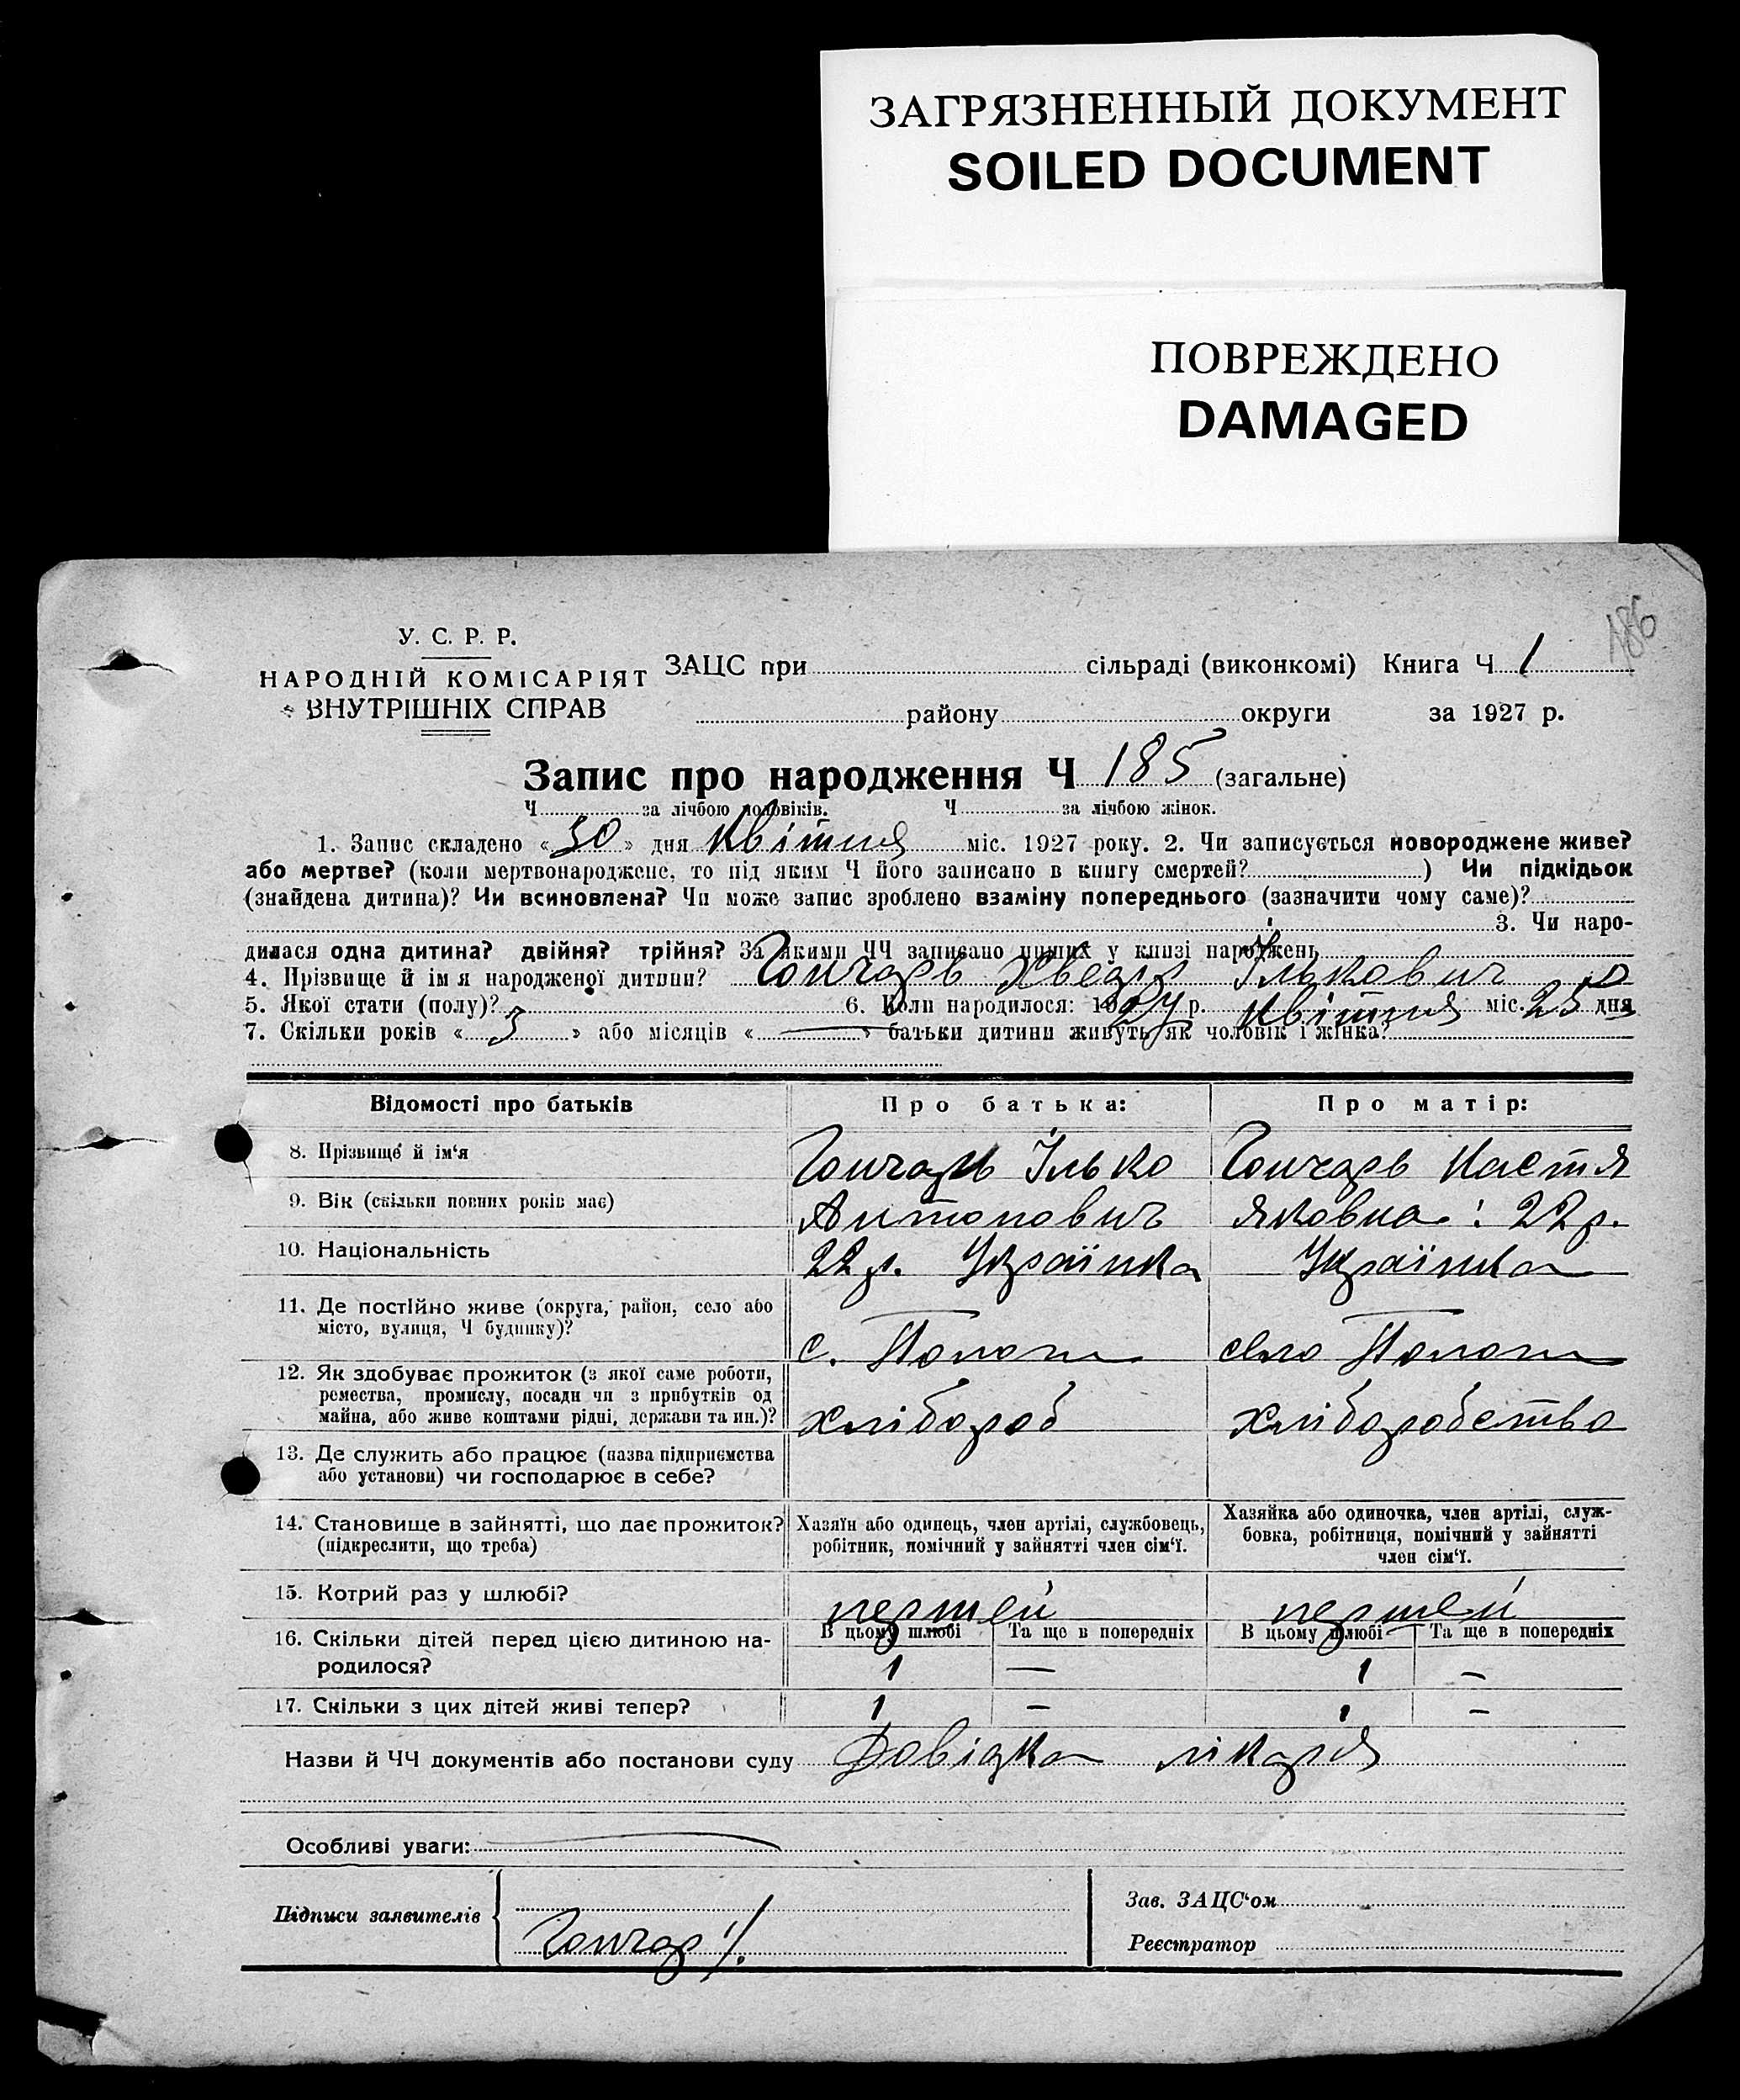 ЗАГРЯЗНЕННЫЙ ДОКУМЕНТ
SOILED DOCUMENT
ПОВРЕЖДЕНО
DAMAGED
186
У. С. Р. Р.
НАРОДНІЙ КОМІСАРІЯТ
ВНУТРІШНІХ СПРАВ
ЗАЦС при сільраді (виконкомі) Книга Ч 1
району округи за 1927 р.
Запис про народження Ч 185 (загальне)
Ч за лічбою чоловіків. Ч за лічбою жінок.
1. Запис складено «30» дня Квітня міс. 1927 року. 2. Чи записується новороджене живе?
або мертве? (коли мертвонароджене, то під яким Ч його записано в книгу смертей? ) Чи підкідьок
(знайдена дитина)? Чи всиновлена? Чи може запис зроблено взаміну попереднього (зазначити чому саме)?
3. Чи наро-
дилася одна дитина? двійня? трійня? За якими ЧЧ записано инших у книзі народжень
4. Прізвище й ім я народженої дитини? Гончарь Хведір Ількович
5. Якої стати (полу)? 6. Коли народилося: 1927 р. Квітня міс. 25 дня
7. Скільки років «3» або місяців « — » батьки дитини живуть як чоловік і жінка?
Відомості про батьків Про батька: Про матір:
8. Прізвище й ім‘я Гончарь Ілько Гончарь Настя
9. Вік (скільки повних років має) Антонович Яковна: 22 р.
10. Національність 22 р. Українка Українка
11. Де постійно живе (округа, район, село або
місто, вулиця, Ч будинку)? с. Пологи село Пологи
12. Як здобуває прожиток (з якої саме роботи,
ремества, промислу, посади чи з прибутків од
майна, або живе коштами рідні, держави та ин.)? хлібороб хліборобство
13. Де служить або працює (назва підприємства
або установи) чи господарює в себе?
14. Становище в зайнятті, що дає прожиток?
(підкреслити, що треба)
Хазяїн або одинець, член артілі, службовець,
робітник, помічний у зайнятті член сім‘ї.
Хазяйка або одиночка, член артілі, служ-
бовка, робітниця, помічний у зайнятті
член сім‘ї.
15. Котрий раз у шлюбі? першей першей
16. Скільки дітей перед цією дитиною на-
родилося?
В цьому шлюбі Та ще в попередніх В цьому шлюбі Та ще в попередніх
1 — 1 —
17. Скільки з цих дітей живі тепер? 1 — 1 —
Назви й ЧЧ документів або постанови суду Довідка лікаря
Особливі уваги:
Підписи заявителів Гончар І.
Зав. ЗАЦС‘ом
Реєстратор